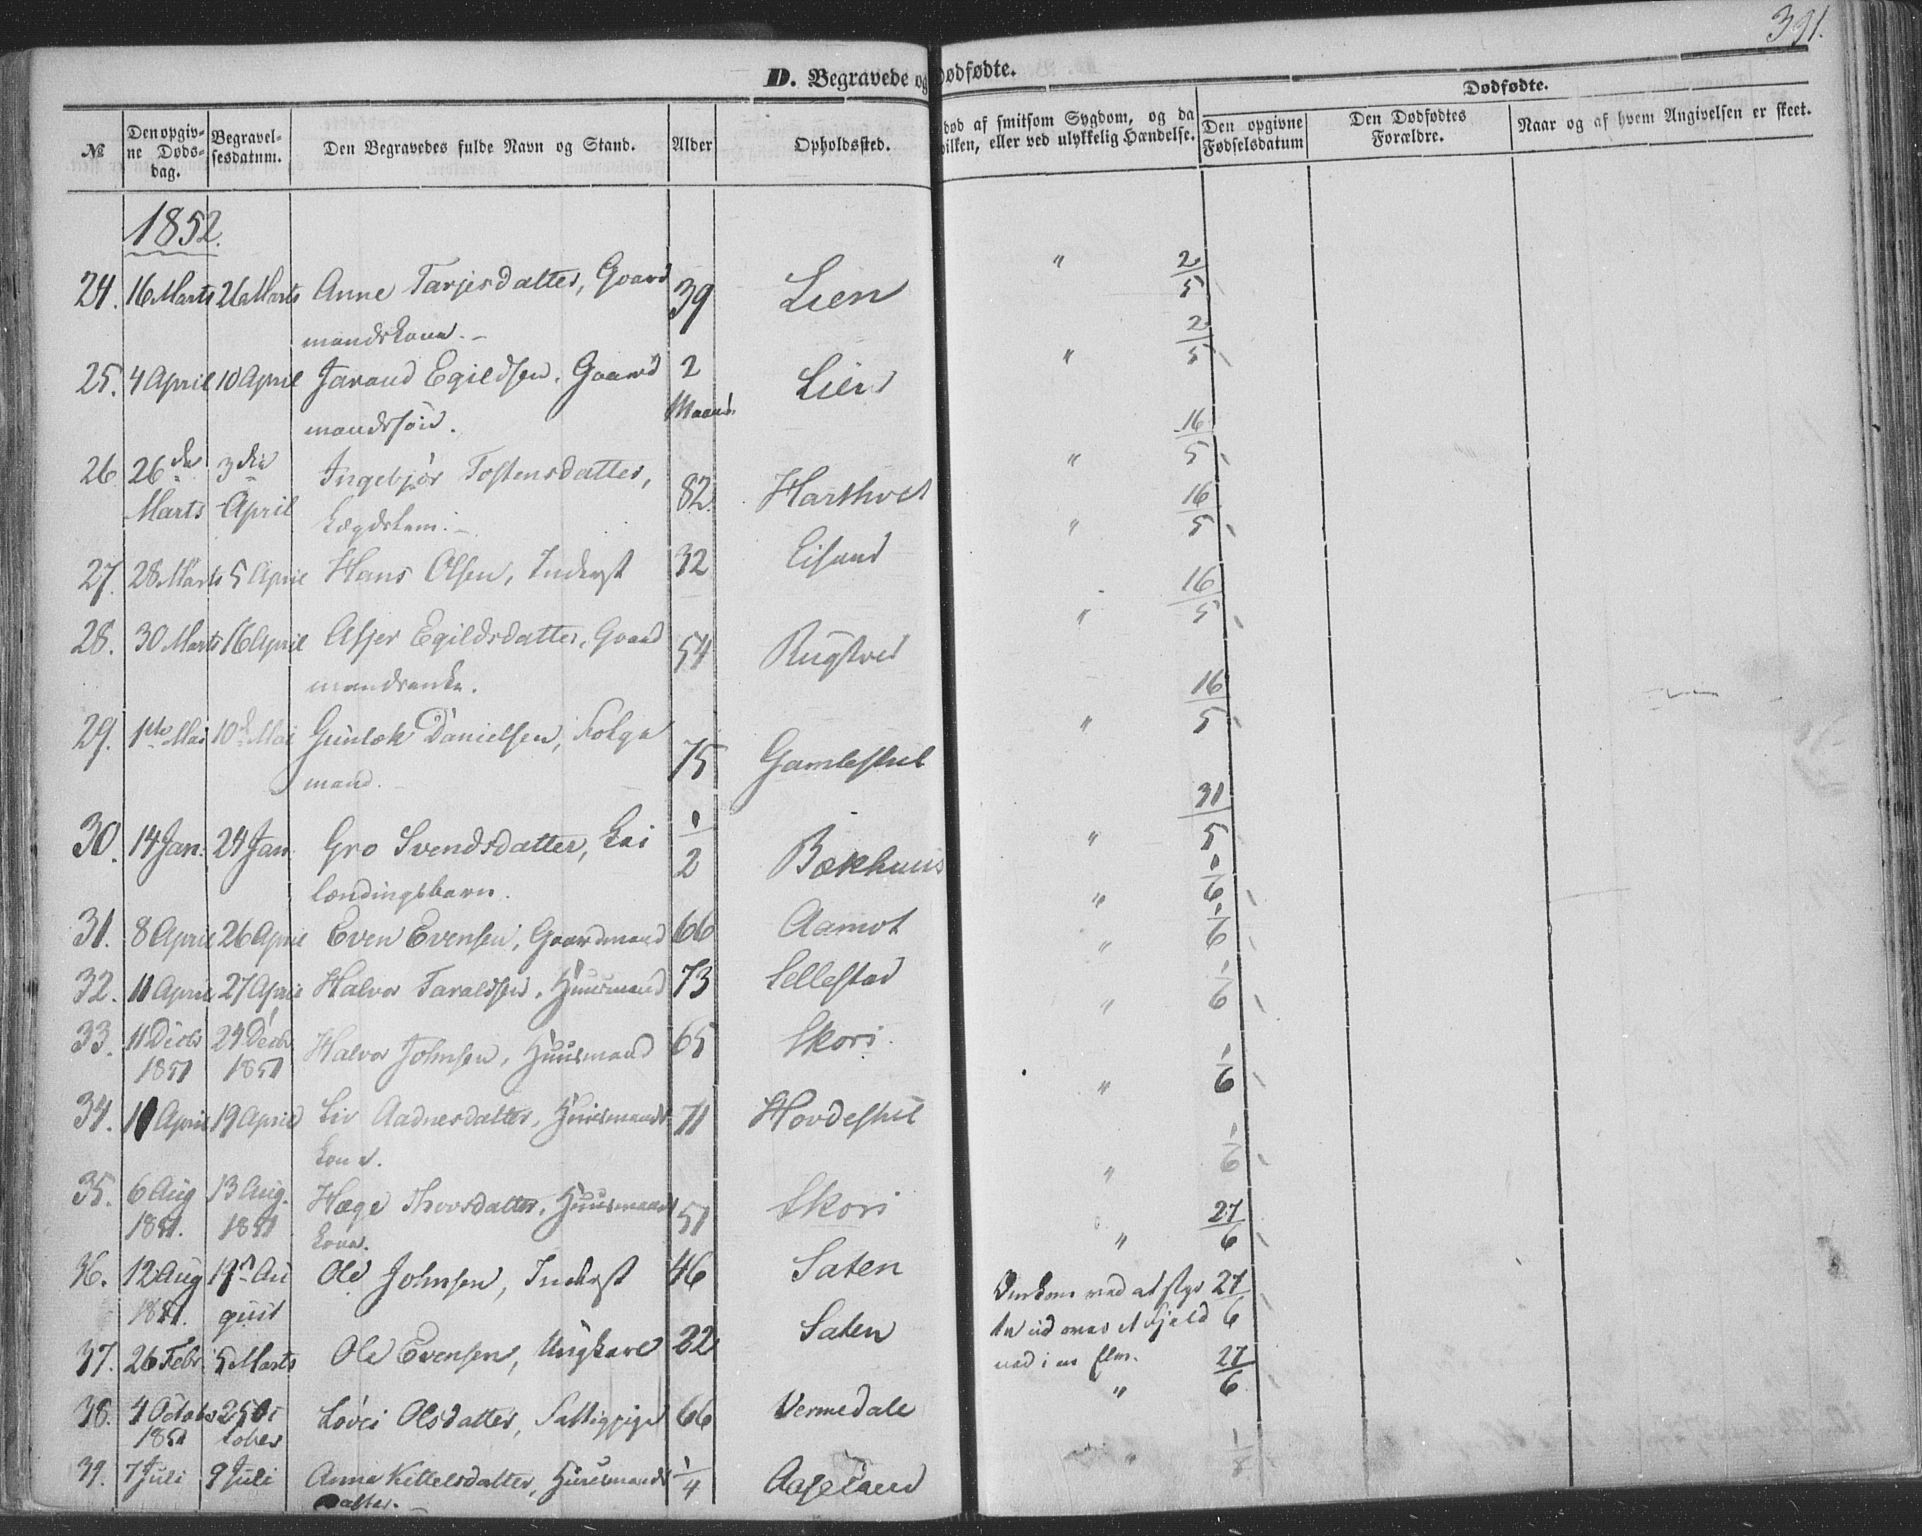 391.
D. Begravede og Dødfødte.
№
Den opgivne Dødsdag.
Begravelsesdatum.
Den Begravedes fulde Navn og Stand.
Alder
Opholdssted.
død af smitsom Sygdom, og da
hvilken, eller ved ulykkelig Hændelse.
Dødfødte.
Den opgivne Fødselsdatum
Den Dødfødtes Forældre.
Naar og af hvem Angivelsen er skeet.
1852.
24. 16 Marts 26 Marts Anne Tarjesdatter, Gaard 39 Lien " 2/5
mandskone.
25. 4 April 10 April Jaraud Egildsen, Gaard 2 Lien " 2/5
mandssøn. Maaned.
26 26de 3die Ingebjør Tostensdatter, 82 Harthvet " 16/5
Marts April Lægdslem.
27. 28 Marts 5 April Hans Olsen, Inderst 32 Eisand " 16/5
28. 30 Marts 16 April Asjer Egildsdatter, Gaard 54 Rugtved " 16/5
mandsenke.
29. 1ste Mai 10de Mai Gunlæk Danielsen, Folge 75 Gamlestul " 16/5
mand.
30. 14 Jan. 24 Jan Gro Svendsdatter, Lei 1/2 Bækhuus " 31/5
lændingsbarn.
31. 8 April 26 April Even Evensen, Gaardmand 66 Aamot " 1/6
32. 11 April 27 April Halvor Taraldsen, Huusmand 73 Sellestad " 1/6
33. 11 Decbr 29 Decbr Halvor Johnsen, Huusmand 65 Skori " 1/6
1851 1851
34. 10 April 19 April Liv Aadnesdatter, Huusmands 71 Hovdestul " 1/6
kone.
35. 6 Aug 13 Aug. Hæge Thorsdatter, Huusmands 51 Skori " 1/6
1851. 1851 kone.
36. 12 Aug 19 Au Ole Johnsen, Inderst 46 Saten " 27/6
1851. gust
37. 26 Febr. 5 Marts Ole Evensen, Ungkarl 22 Saten Omkom ved at styr 27/6
te ud over et Fjeld
ned i en Elv.
38. 4 October 25 Oc Lovei Olsdatter, Fattigpige 66 Vermedale " 27/6
1851 tober
39. 7 Juli 9 Juli Anne Kittelsdatter, Huusmands 1/4 "
datter.